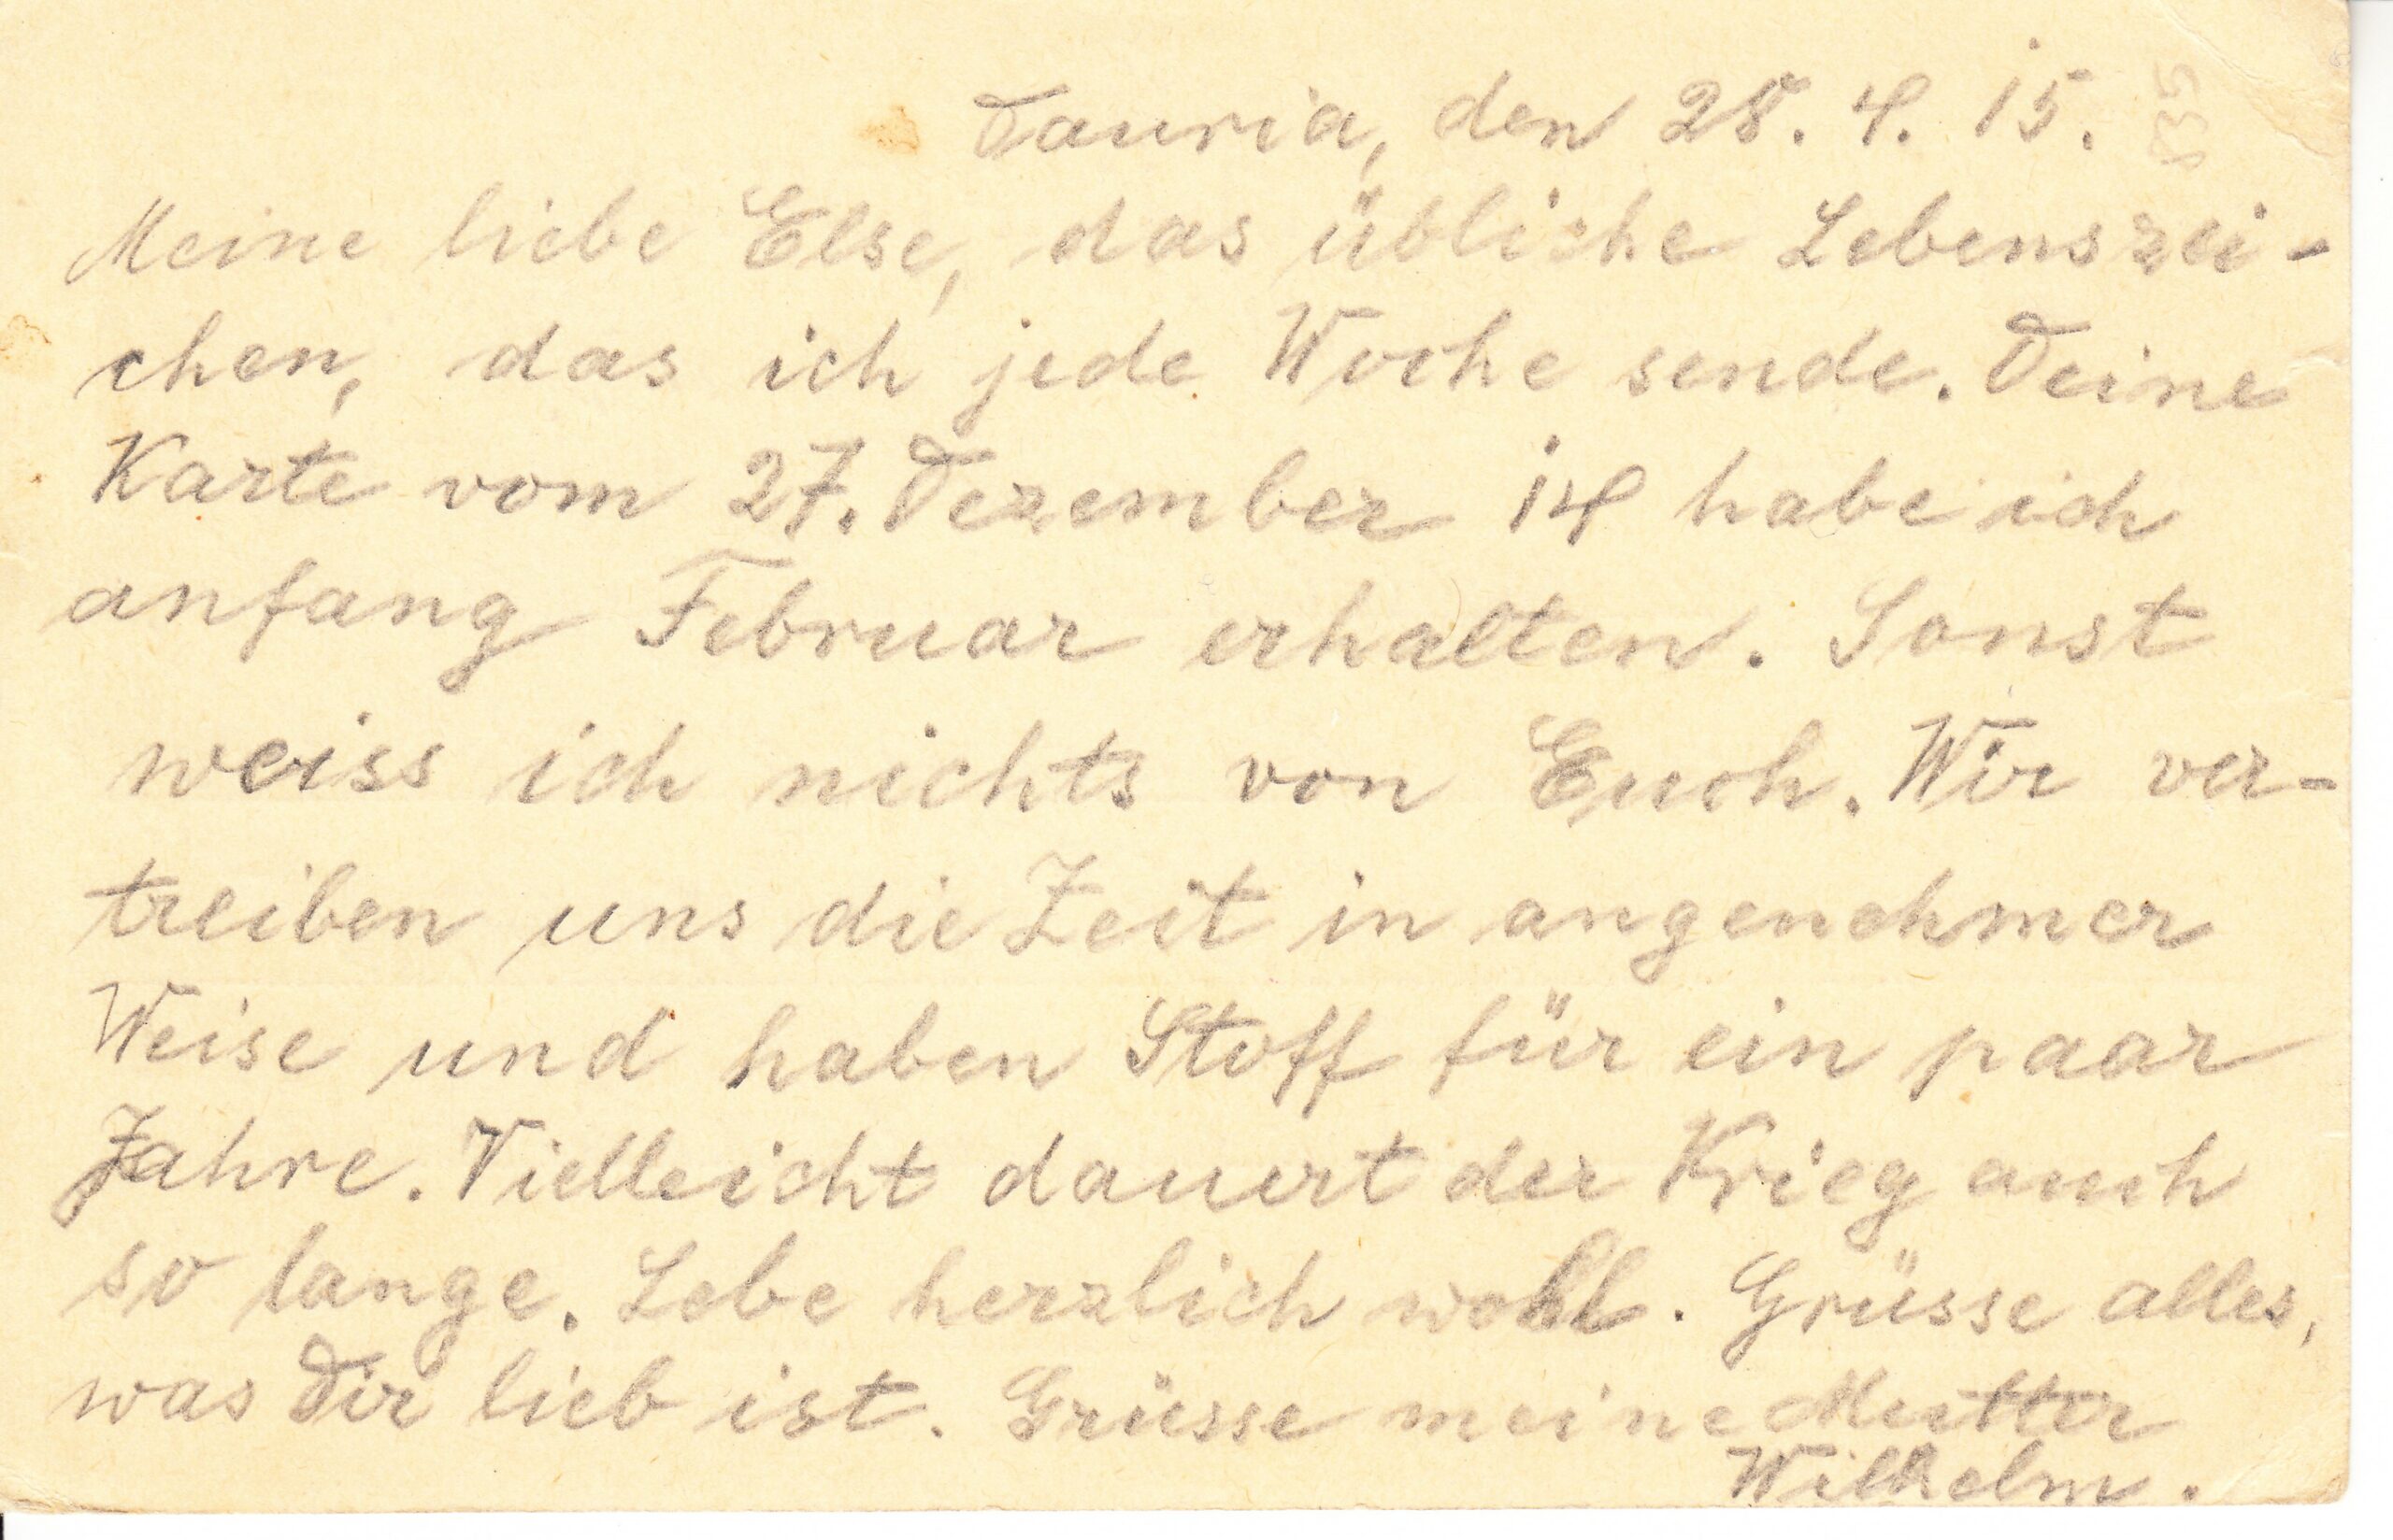 Dauria, den 28. 4. 15.
Meine liebe Else, das übliche Lebenszei-
chen, das ich jede Woche sende. Deine
Karte vom 27. Dezember 14 habe ich
anfang Februar erhalten. Sonst
weiss ich nichts von Euch. Wir ver-
treiben uns die Zeit in angenehmer
Weise und haben Stoff für ein paar
Jahre. Vielleicht dauert der Krieg auch
so lange. Lebe herzlich wohl. Grüsse alles,
was Dir lieb ist. Grüsse meine Mutter
Wilhelm.